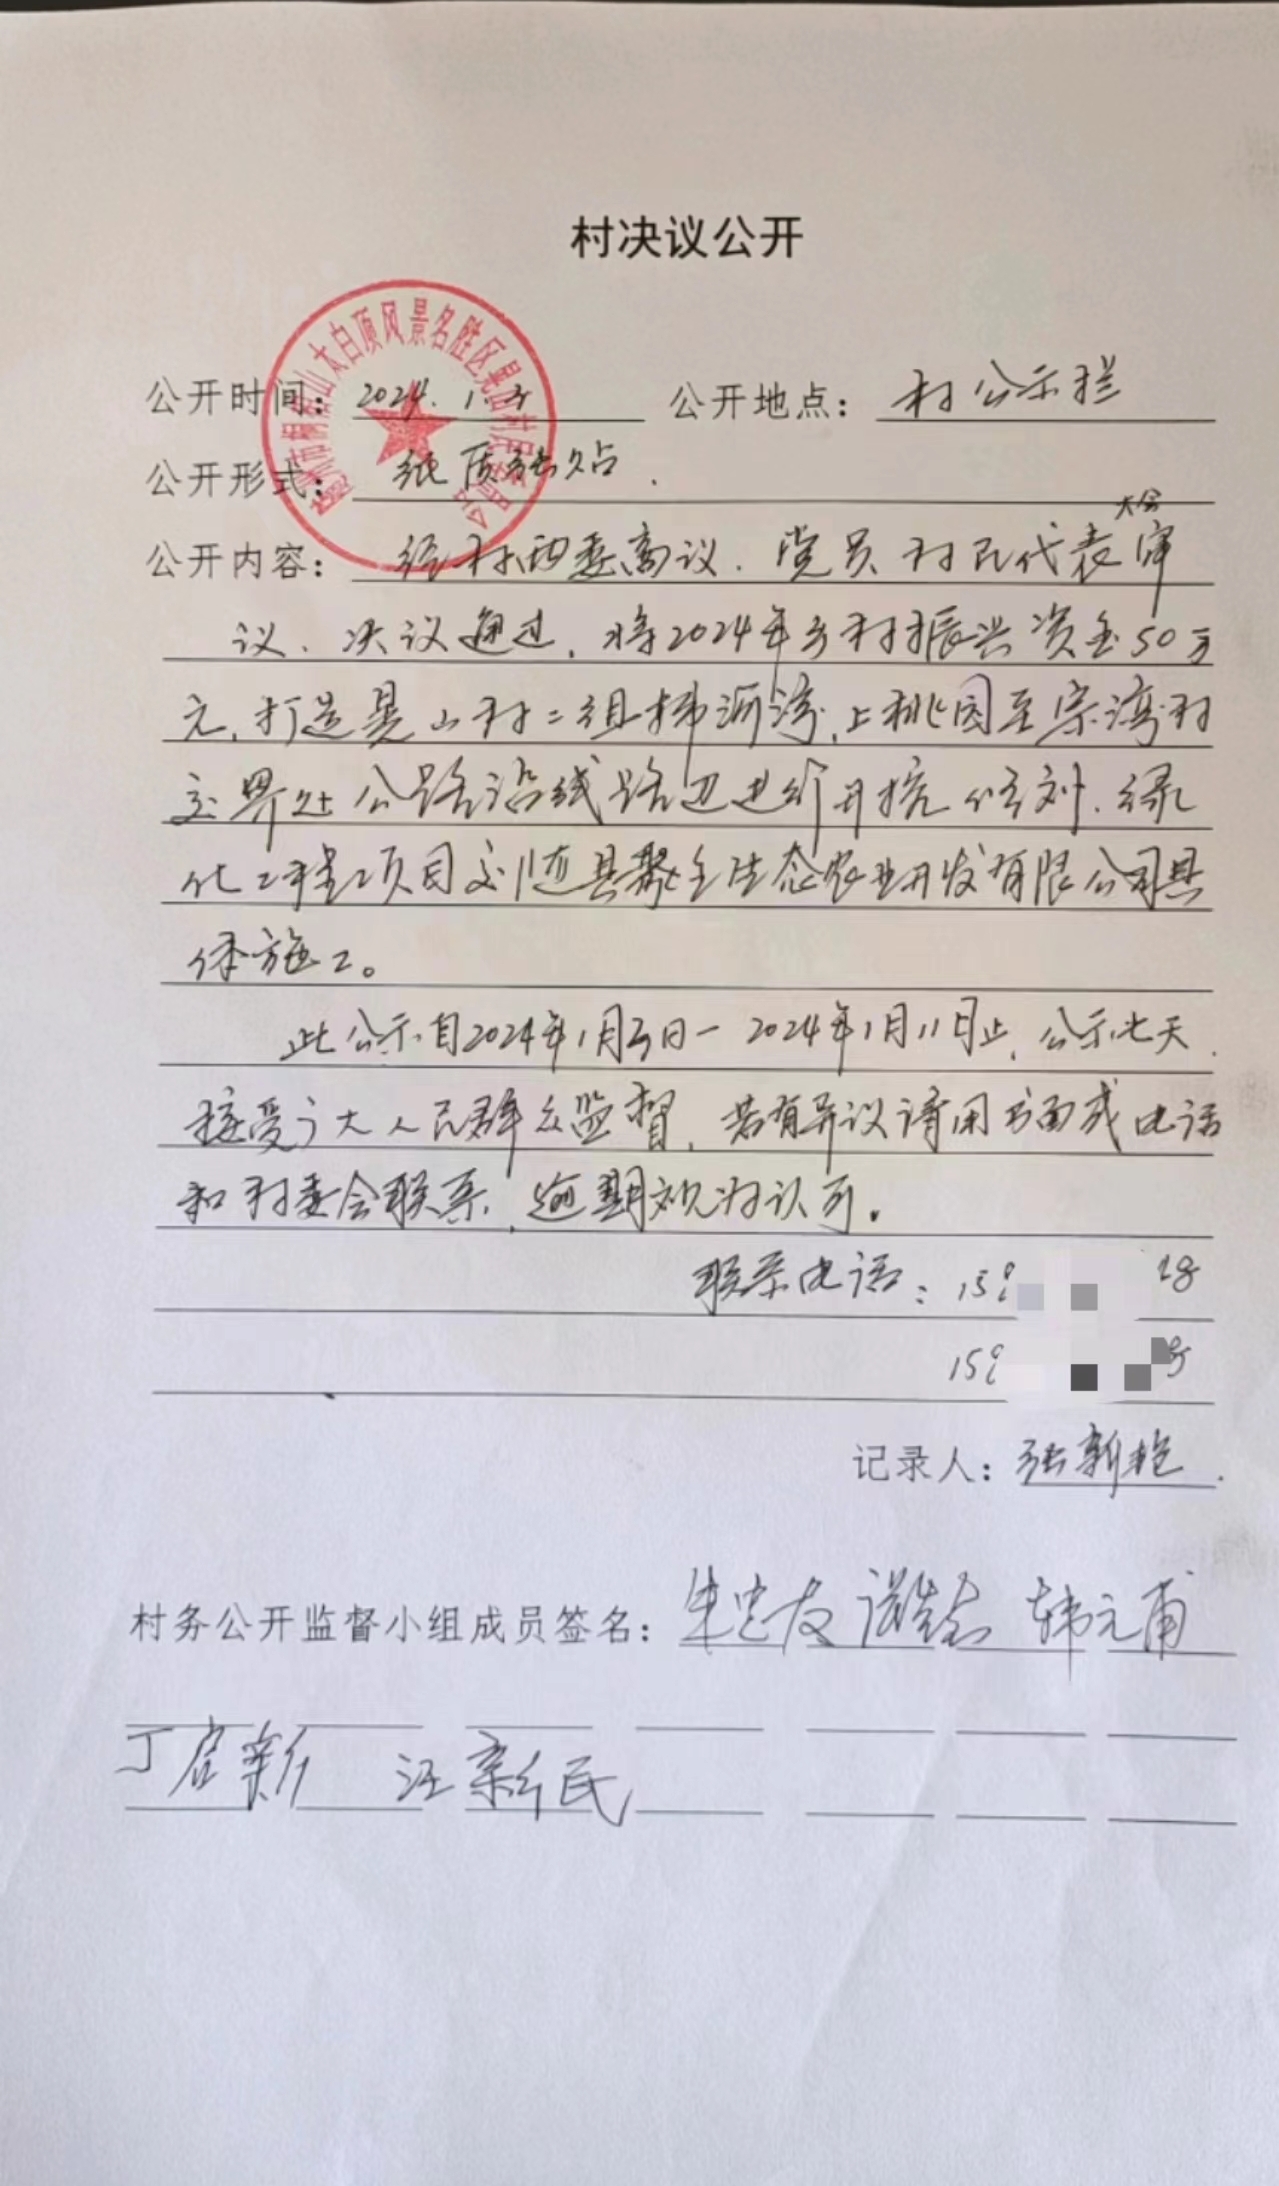 村决议公开
公开时间：2024.1.5 公开地点：村公示栏
公开形式：纸质张贴.
公开内容：经村两委商议.党员 村民代表大会审
议.决议通过,将2024年乡村振兴资金50万
元,打造 山村二组 湾,上桃园至宗湾村
交界处公路沿线路边进行开挖 .绿
化工程项目交随县聚全生态农业开发有限公司具
体施工。
此公示自2024年1月5日-2024年1月11日止,公示七天.
接受广大人民群众监督,若有异议请用书面或电话
和村委会联系,逾期视为认可。
联系电话：159 18
159
记录人：张新
村务公开监督小组成员签名：朱忠友 韩元甫
丁启新 汪新民
山太白顶风景名胜区 村民委员会